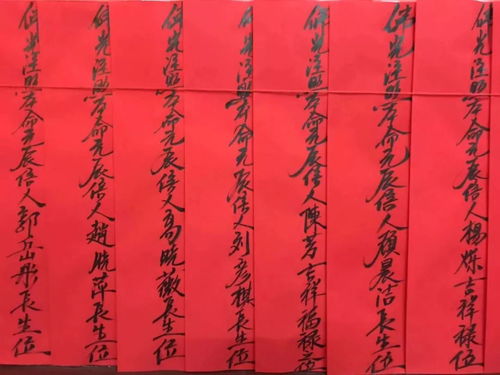 佛光注照本命元辰信人楊吉祥祿位
佛光注照本命元辰信人晨洁長生位
佛光注照本命元辰信人陳芳吉祥福祿位
佛光注照本命元辰信人刘彦棋長生位
佛光注照本命元辰信人高晓薇長生位
佛光注照本命元辰信人趙晓萍長生位
佛光注照本命元辰信人郭岳彤長生位